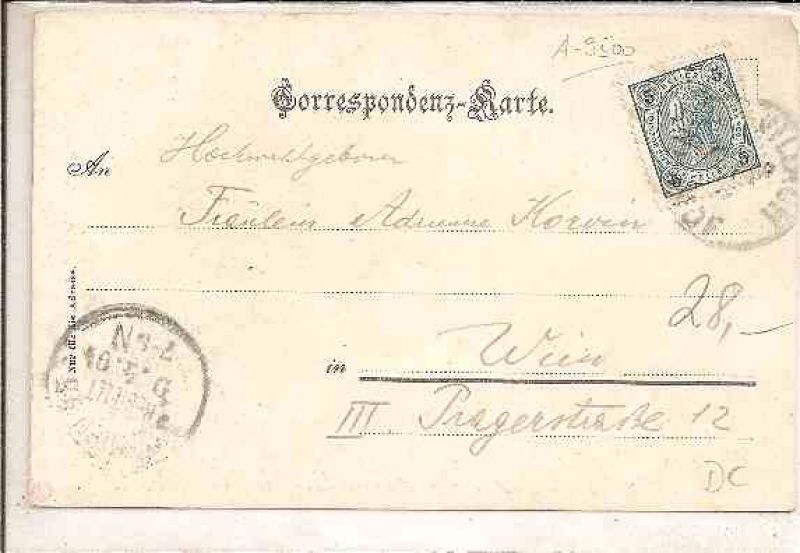 A-9500
Correspondenz-Karte.
An Hochwohlgeboren
Fräulein Adrienne Korvin
28,-
in Wien
III. Pragerstraße 12
DC
Nur für die Adresse.
5 5
5 5